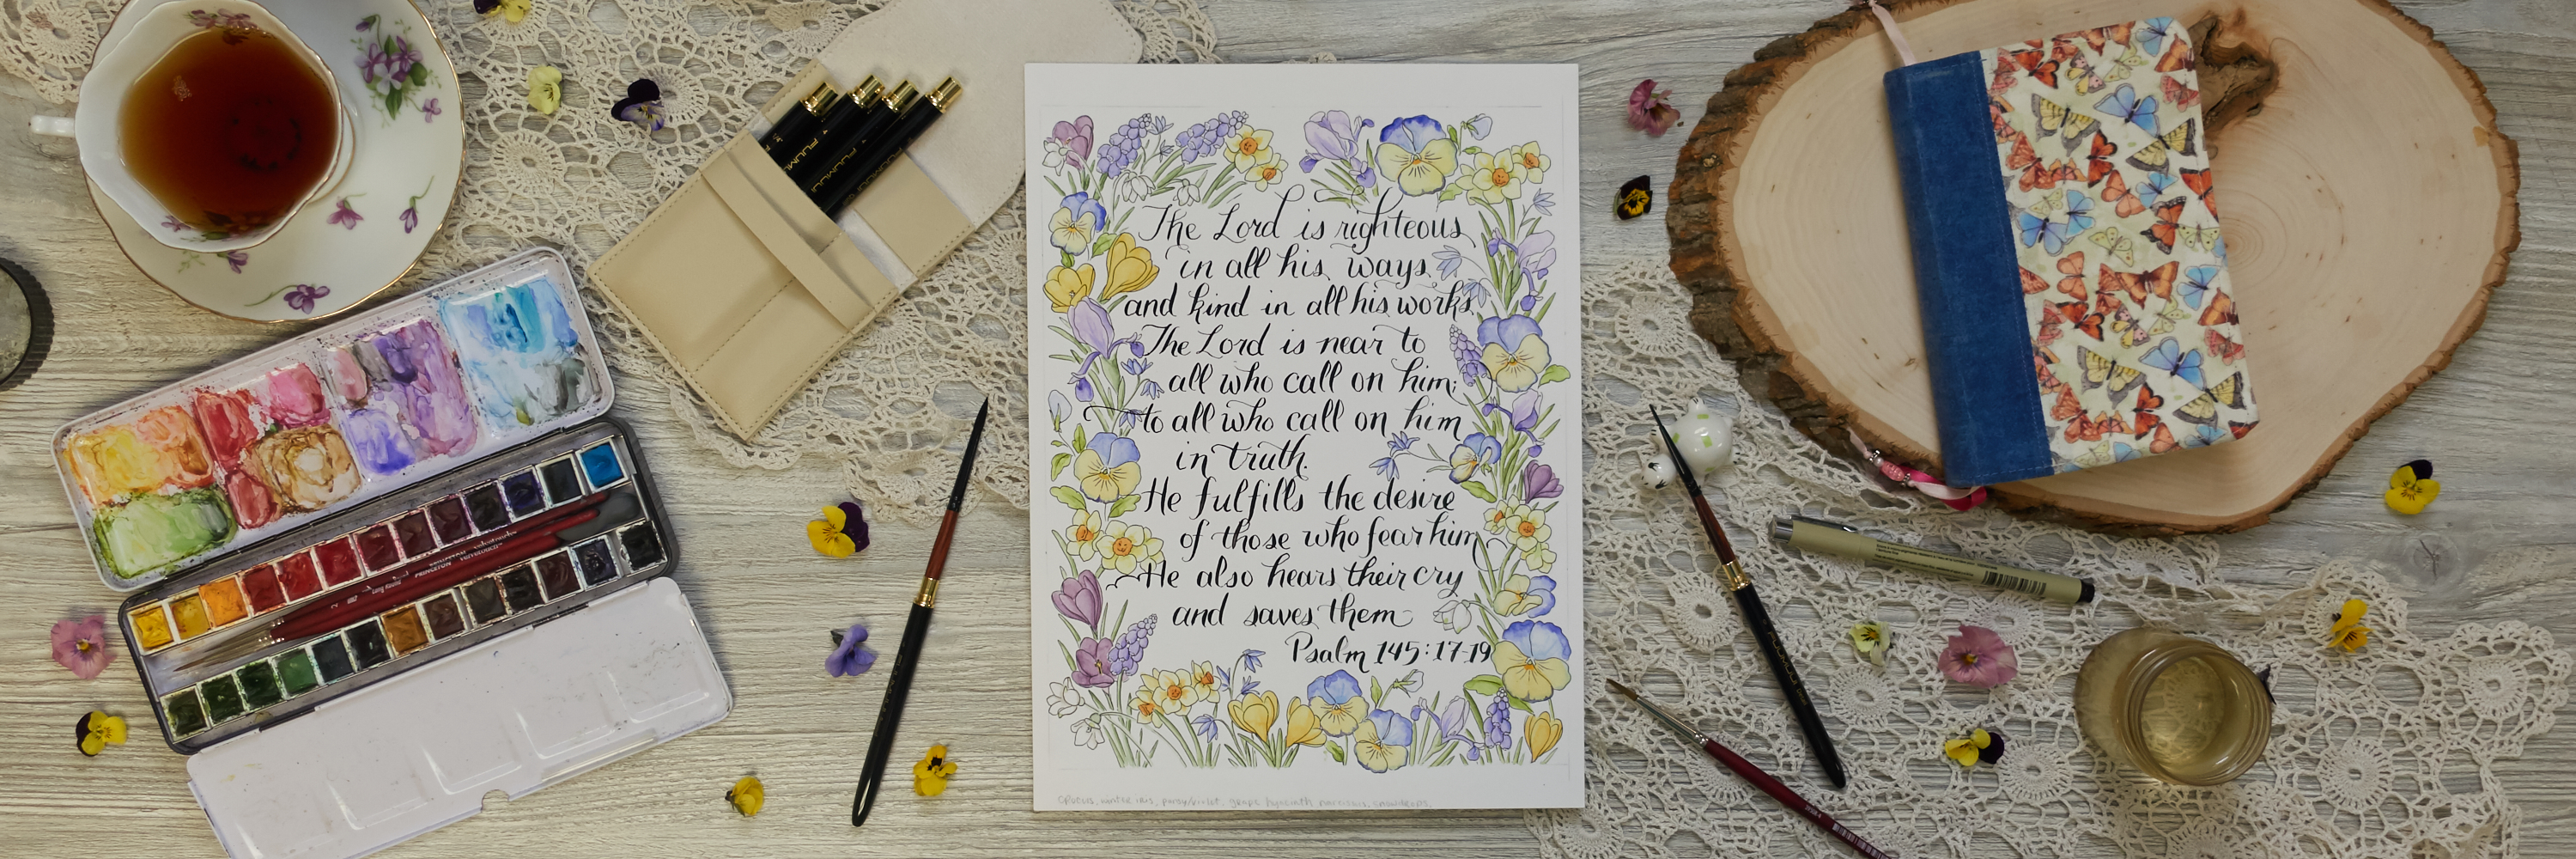 The Lord is righteous
in all his ways
and kind in all his works.
The Lord is near to
all who call on him;
to all who call on him
in truth.
He fulfills the desire
of those who fear him
He also hears their cry
and saves them
Psalm 145:17-19
crocus, winter iris, pansy/violet, grape hyacinth, narcissus, snowdrops
PRINCETON